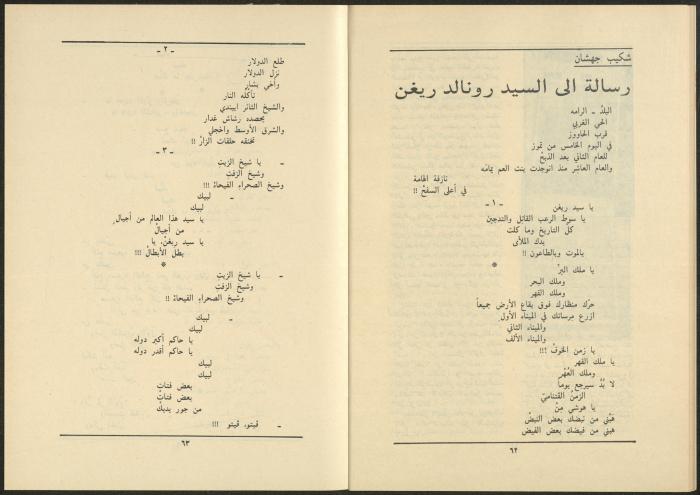 شكيب جهشان
رسالة الى السيد رونالد ريغن
البلدُ ـ الرامه
الحي الغربي
قرب الحاووز
في اليوم الخامس من تموز
للعام الثاني بعد الذبحْ
والعام العاشر منذ انوجدت بنت العم يمامه
نازفة الهامة
في أعلى السفحْ !!
ـ ١ ـ
يا سيد ريغن
يا سوط الرعب القاتل والتدجين
كلّ التاريخ وما كلت
يدك الملأى
بالموت وبالطاعون !!
*
يا ملك البرّ
وملك البحر
وملك القهر
حرّك منظارك فوق بقاع الأرض جميعاً
ازرع مرساتك في الميناء الأول
والميناء الثاني
والميناء الألف
يا زمن الخوفْ !!!
يا ملك القهر
وملك العُهْر
لا بُدّ سيرجع يوماً
الزمنُ الفتناميّ
يا هوشي مِنْ
هبْني من نبضك بعض النبضْ
هبني من فيضك بعض الفيض
٦٢
ـ ٢ ـ
طلع الدولار
نزل الدولار
وأخي بشار
تأكله النار
والشيخ الثائر ايبندي
يحصده رشاش غدار
والشرق الأوسط واخجلي
تخنقه حلقات الزارْ !!
ـ ٣ ـ
ـ يا شيخ الزيتِ
وشيخ الزفت
وشيخ الصحراء الفيحاءْ !!!
ـ لبيك
لبيك
يا سيد هذا العالم من أجيالٍ
من أجيالْ
يا سيد ريغن، يا
بطل الأبطالْ !!!
*
ـ يا شيخ الزيتِ
وشيخ الزفت
وشيخ الصحراء الفيحاءْ !!
ـ لبيك
لبيك
يا حاكم أكبر دوله
يا حاكم أقدر دوله
لبيك
لبيك
بعض فتات
بعض فتات
من جور يديك
ـ ڤيتو، ڤيتو !!!
٦٣